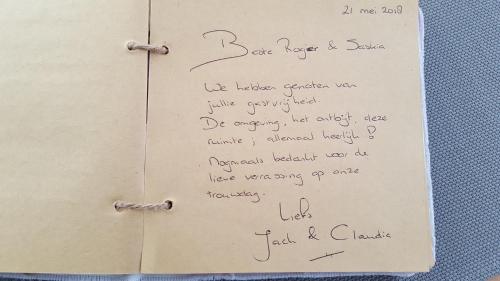 21 mei 2018
Beste Roger & Saskia
We hebben genoten van
jullie gastvrijheid.
De omgeving, het ontbijt, deze
ruimte; allemaal heerlijk!
Nogmaals bedankt voor de
lieve verassing op onze
trouwdag.
Liefs
Jach & Claudia